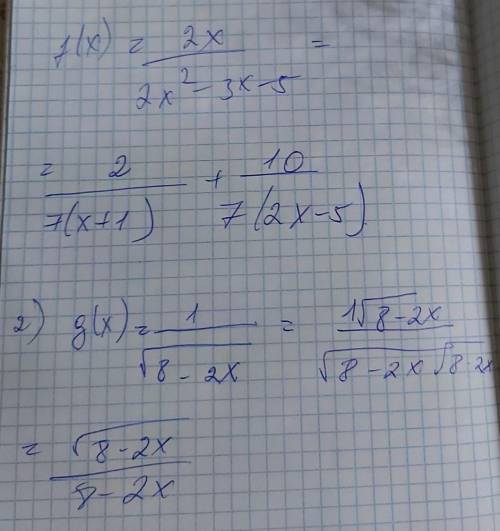 f(x) = 2x / 2x² - 3x - 5 =
= 2 / 7(x+1) + 10 / 7(2x-5)
2) g(x) = 1 / √8 - 2x = 1√8-2x / √8-2x √8-2x
= √8-2x / 8-2x